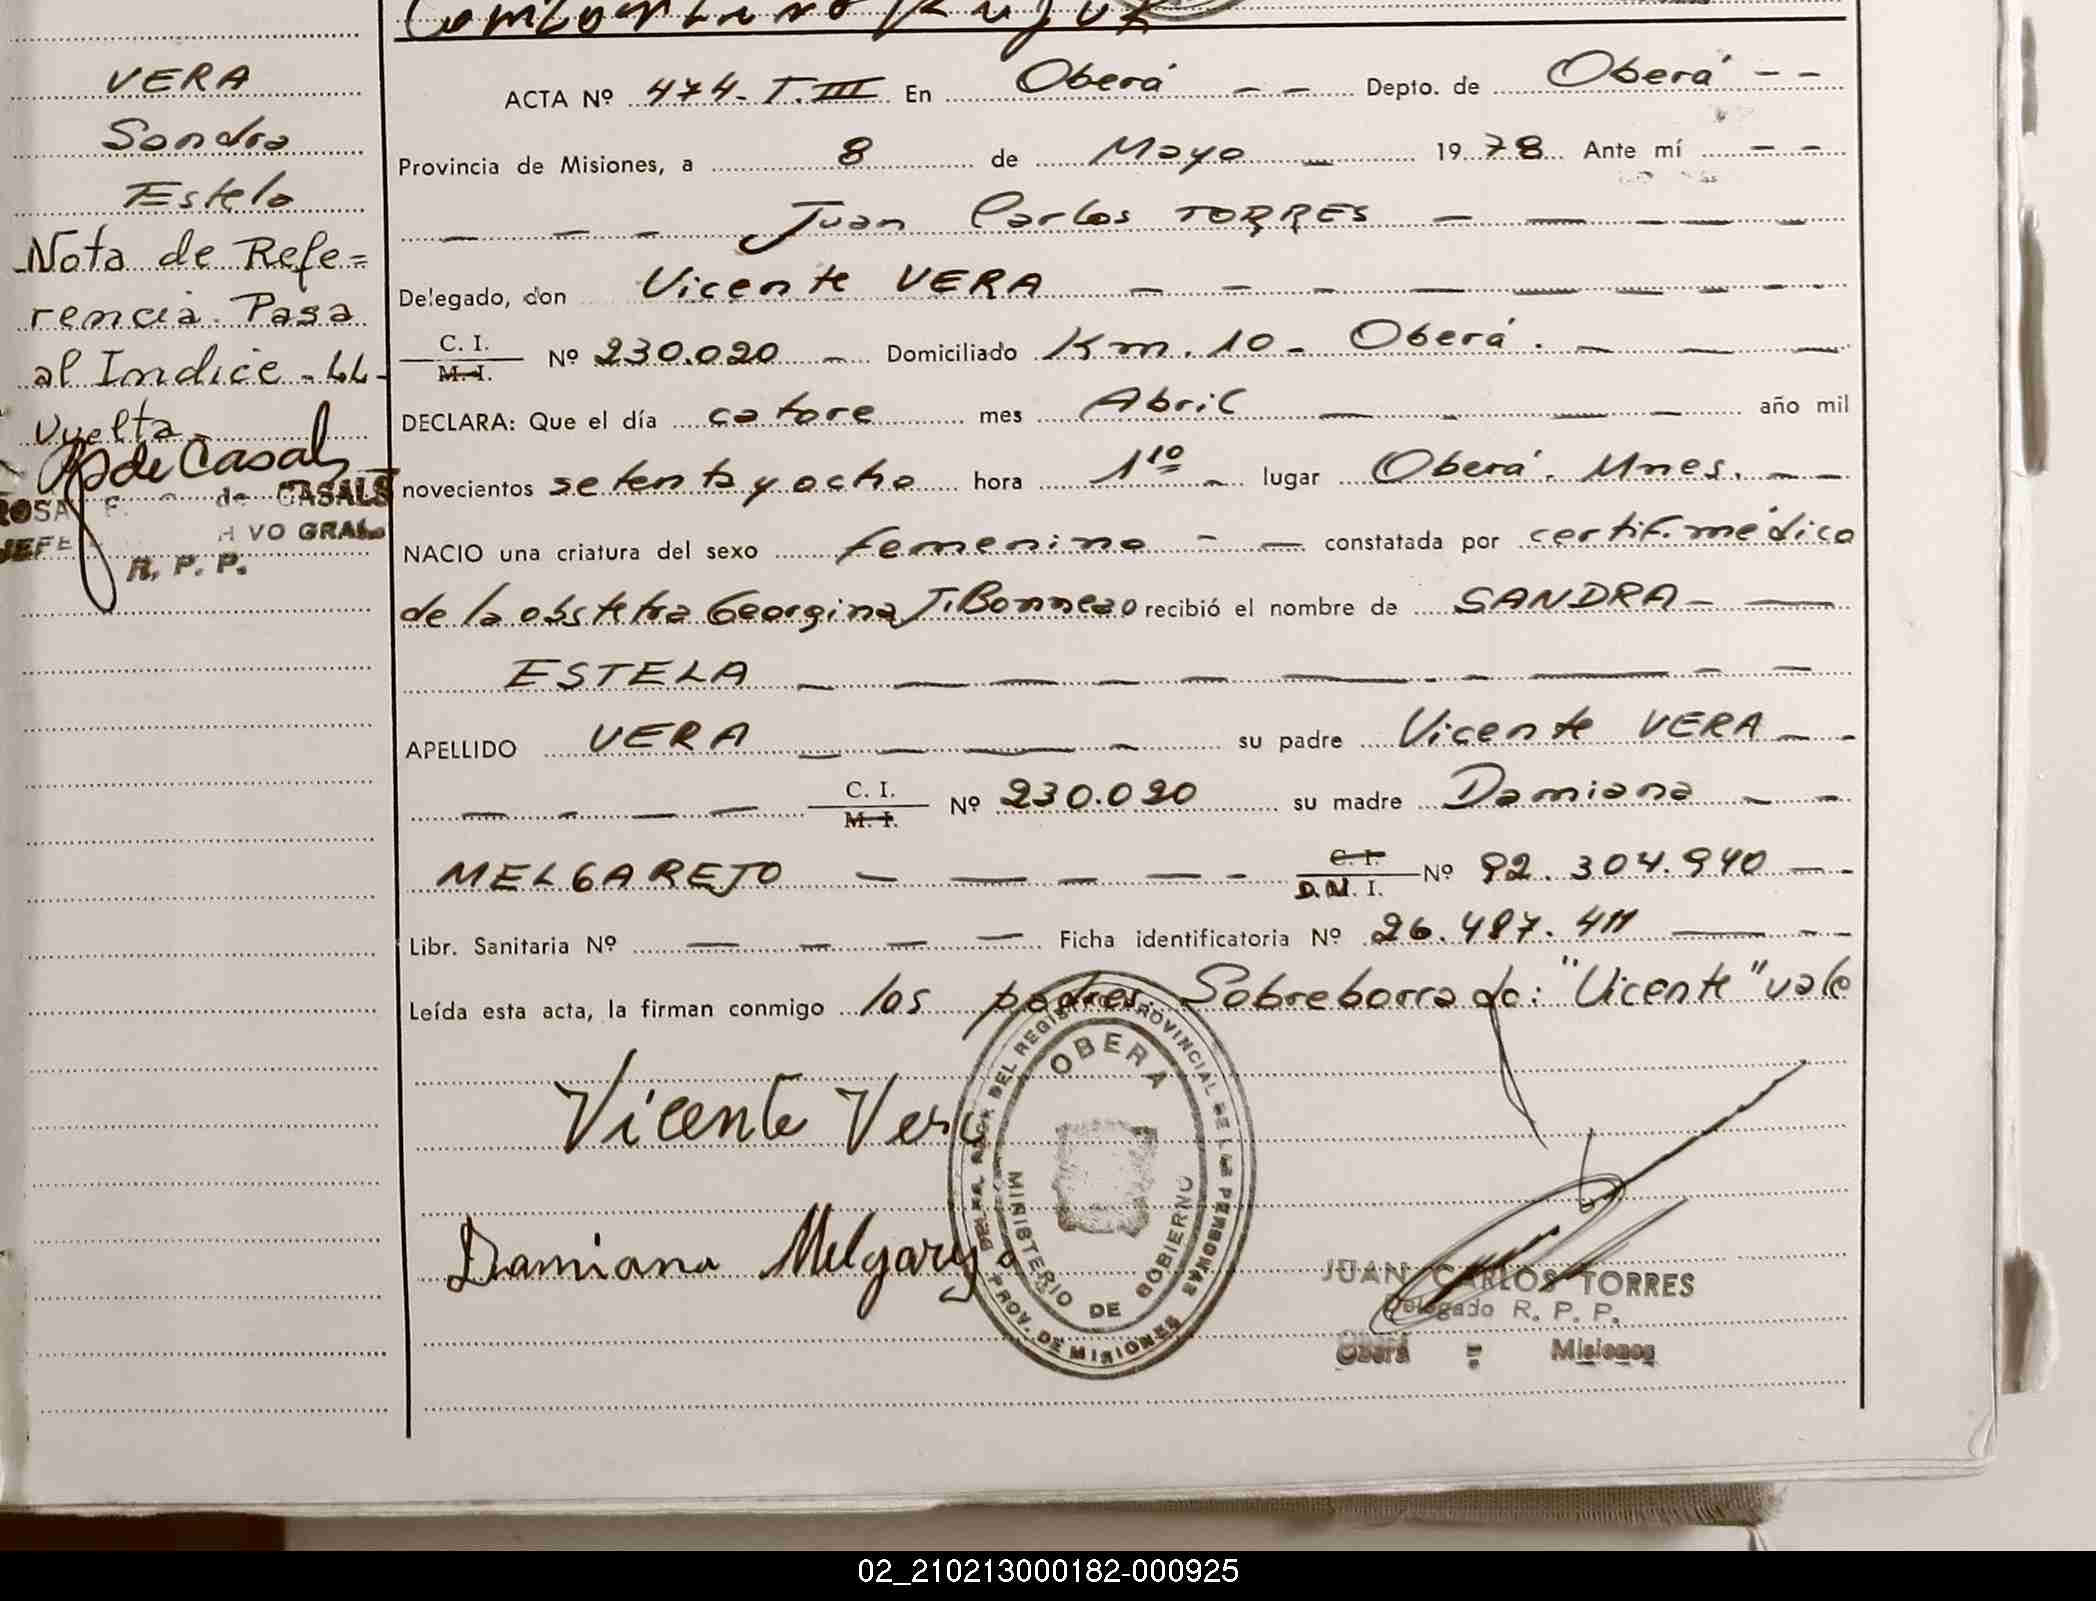 VERA
Sandra
Estela
Nota de Refe=
rencia. Pasa
al Indice - LL-
Vuelta
R de Casals
ROSA F. de CASALS
JEFE VO GRAL.
R. P. P.
ACTA Nº 474- T. III En Oberá - - Depto. de Oberá - -
Provincia de Misiones, a 8 de Mayo - 1978 Ante mí - -
- - - Juan Carlos TORRES - - - - -
Delegado, don Vicente VERA - - - - - - - - -
C. I.
M. I. Nº 230.020 - Domiciliado Km. 10 - Oberá. - - -
DECLARA: Que el día catorce mes Abril - - - - año mil
novecientos setenta y ocho hora 1¹⁰ - lugar Oberá. Mnes. - -
NACIO una criatura del sexo femenino - - constatada por certif. médico
de la obstetra Georgina J. Bonneao recibió el nombre de SANDRA - -
ESTELA - - - - - - - - - - -
APELLIDO VERA - - - - su padre Vicente VERA - -
- - - - C. I.
M. I. Nº 230.020 su madre Damiana - -
MELGAREJO - - - - - C. I.
D.N. I. Nº 92.304.940 - -
Libr. Sanitaria Nº - - - - Ficha identificatoria Nº 26.487.411 - - -
Leída esta acta, la firman conmigo los padres. Sobreborrado: "Vicente" vale
Vicente Vera
Damiana Melgarejo
DEL REGISTRO PROVINCIAL DE LAS PERSONAS
OBERA
MINISTERIO DE GOBIERNO
PROV. DE MISIONES
JUAN CARLOS TORRES
Delegado R. P. P.
Oberá - Misiones
02_210213000182-000925